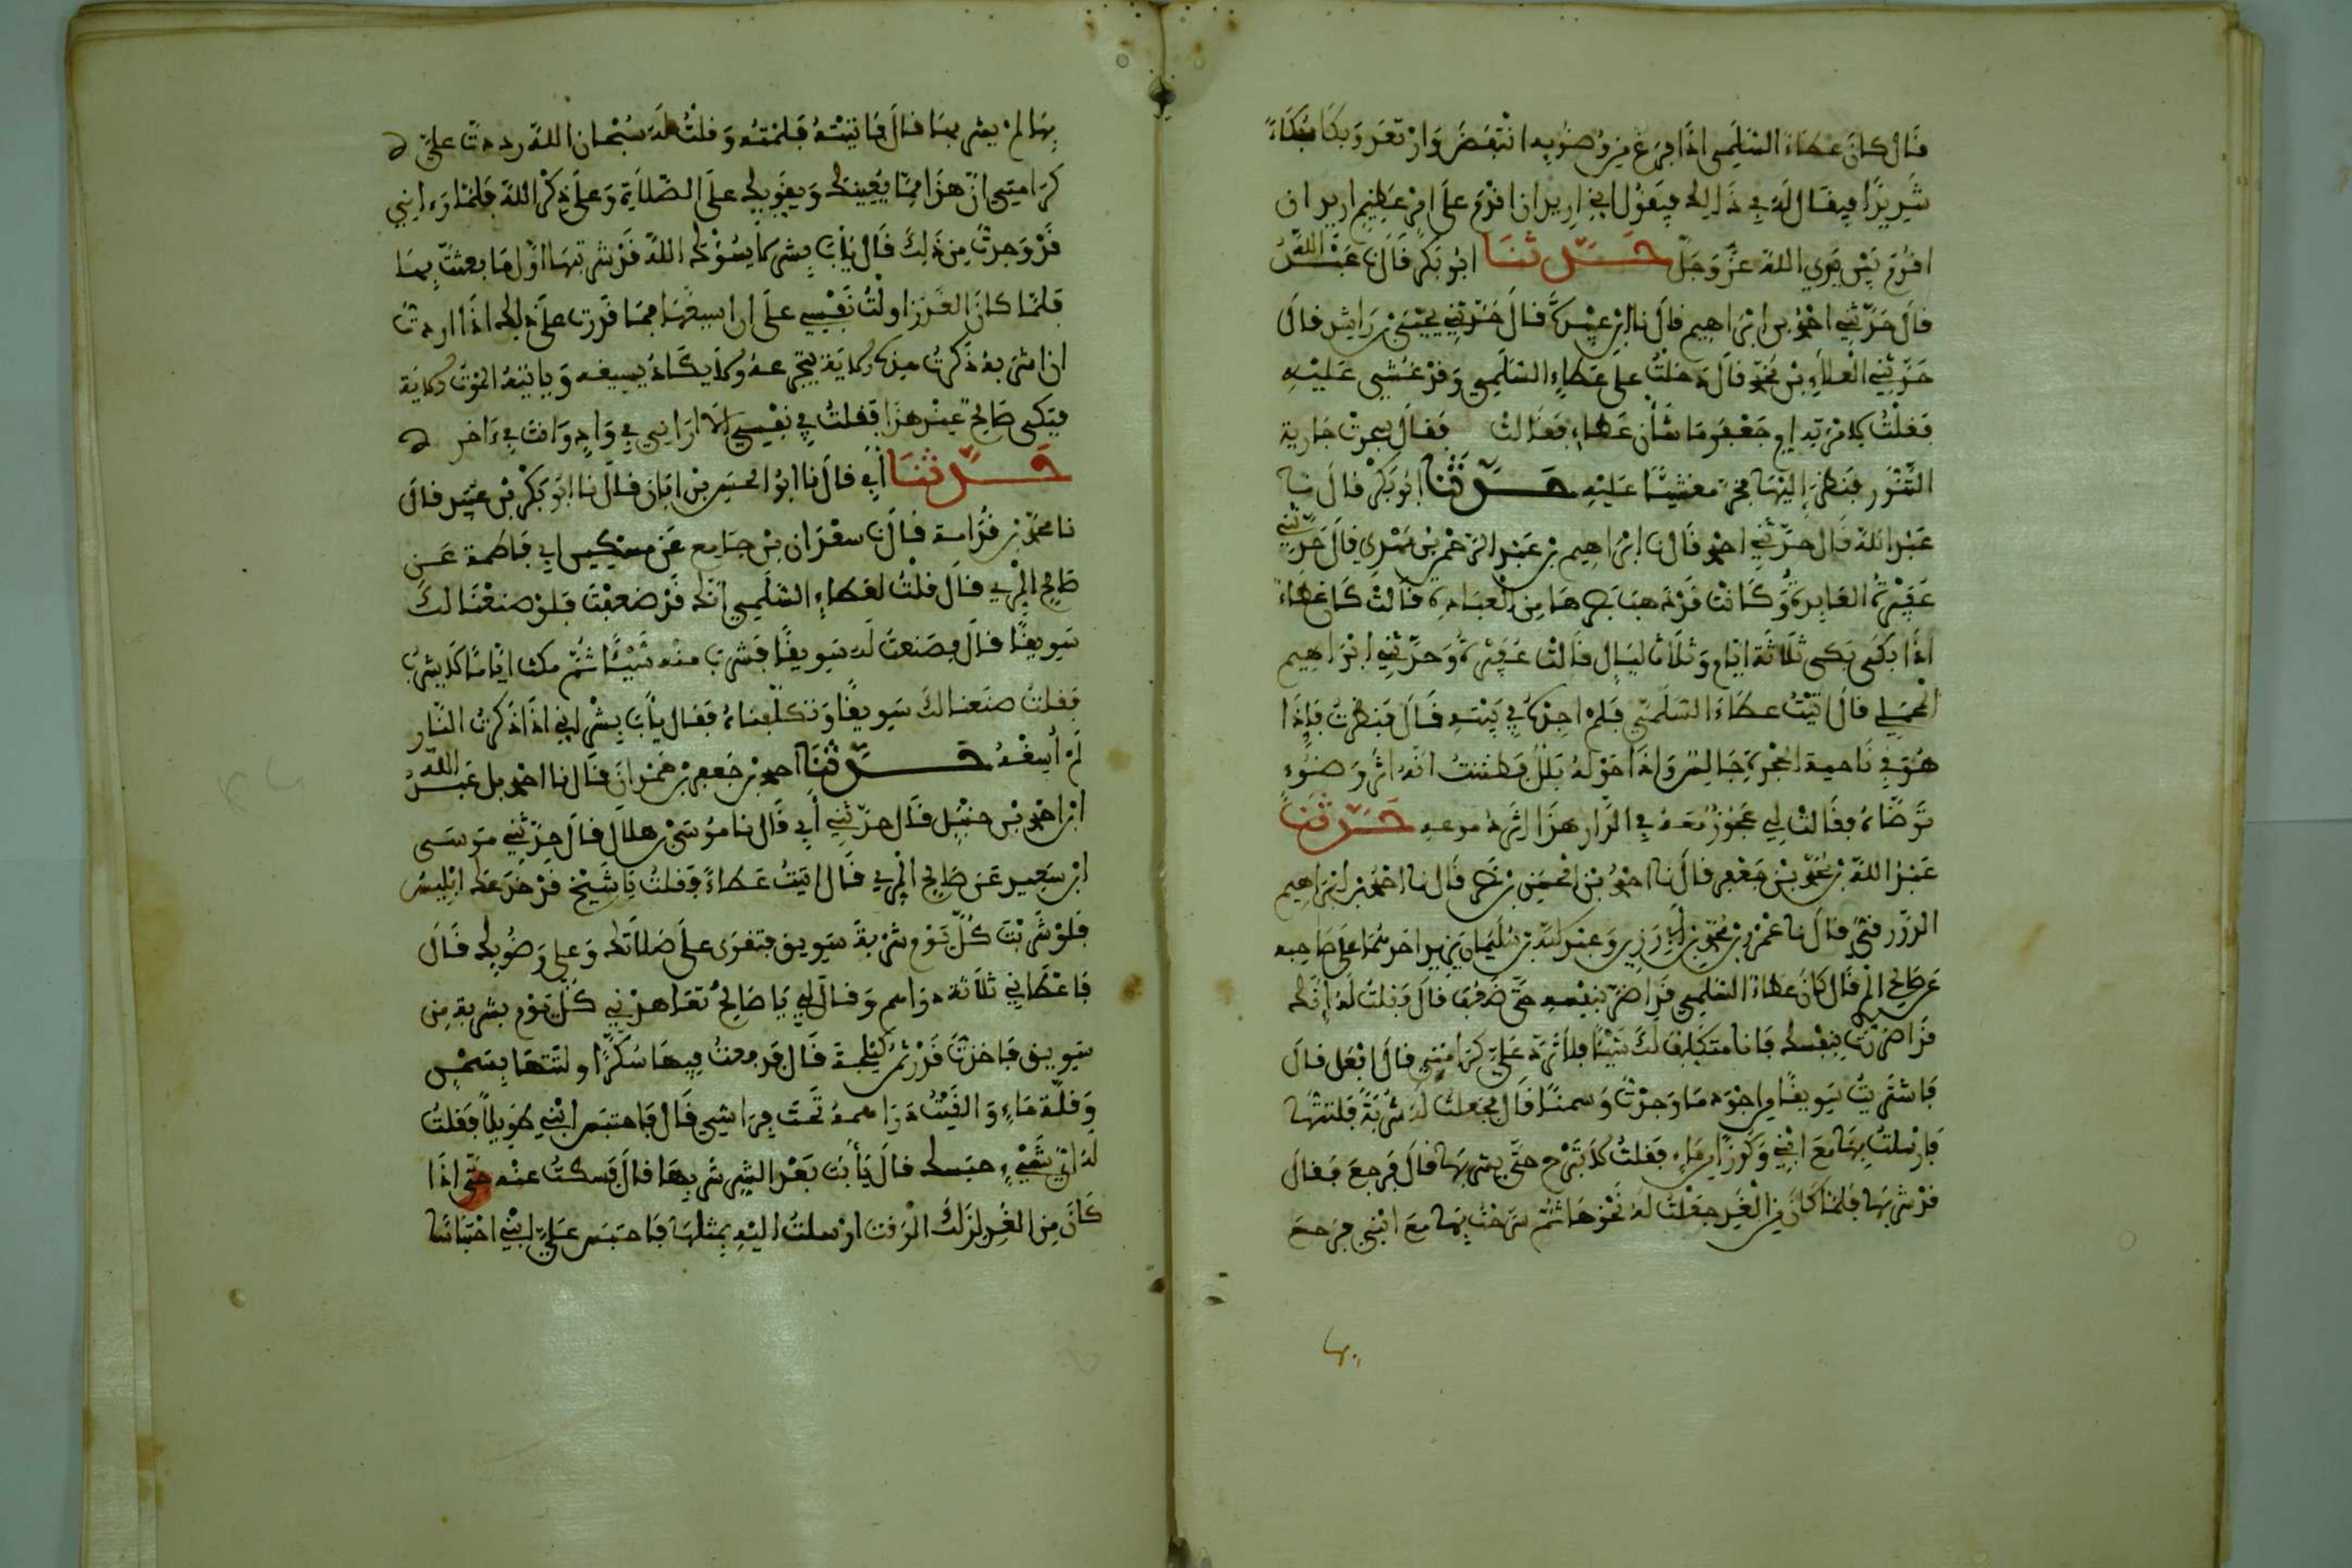 قال كان عطاء السليمي اذا فرغ من وضوئه انتفض وارتعد وبكا بكاء
شديدا فيقال له في ذلك فيقول اني اريد ان اقدم على امر عظيم اريد ان
اقوم بين يدي الله عز وجل حدثنا ابو بكر قال نا عبد الله
قال حدثني احمد بن ابراهيم قال نا ابن عبيدة قال حدثني يحيى بن راشد قال
حدثني العلاء بن محمد قال دخلت على عطاء السليمي وقد غشي عليه
فقلت لامرته ام جعفر ما شأن عطاء فقالت فقال سجرت جارية
التنور فنظر اليها فخر مغشيا عليه حدثنا ابو بكر قال نا
عبد الله قال حدثني احمد قال نا ابراهيم بن عبد الرحمن بن مهدي قال حدثتني
عفيرة العابدة وكانت قد ذهب بصرها من العبادة قالت كان عطاء
اذا بكى بكى ثلاثة ايام وثلاث ليال قالت عفيرة وحدثني ابراهيم
المحملي قال اتيت عطاء السليمي فلم اجده في بيته قال فنظرت فإذا
هو في ناحية الحجرة جالس واذا حوله بلل فظننت انه اثر وضوء
توضأه فقالت لي عجوز معه في الدار هذا اثر دموعه حدثنا
عبد الله بن محمد بن جعفر قال نا احمد بن الحسين بن نصر قال نا احمد بن ابراهيم
الدورقي قال نا عمرو بن محمد بن ابي رزين وعبيد الله بن سليمان يزيد احدهما على صاحبه
عن صالح المري قال كان عطاء السليمي قد اضر بنفسه حتى ضعف قال فقلت له إنك
قد اضررت بنفسك فانا متكلف لك شيئا فلا ترد علي كرامتي قال افعل قال
فاشتريت سويقا من اجود ما وجدت وسمنا قال فجعلت له شربة فلتتها
فارسلت بها مع ابني وكوزا من ماء فقلت لا تبرح حتى يشربها قال فرجع فقال
قد شربها فلما كان من الغد جعلت له نحوها ثم سرحت بها مع ابني فرجع
بها
بها لم يشربها قال فاتيته فلمته وقلت له سبحان الله رددت علي
كرامتي ان هذا مما يعينك ويقويك على الصلاة وعلى ذكر الله فلما رءاني
قد وجدت من ذلك قال يأبا بشر لا يسؤك الله قد شربتها اول ما بعثت بها
فلما كان الغد زاولت نفسي على ان اسيغها فما قدرت على ذلك اذا اردت
ان اشربه ذكرت هذه الاية يتجرعه ولا يكاد يسيغه وياتيه الموت الاية
فبكى صالح عند هذا فقلت في نفسي الا اراني في واد وانت في ءاخر
حدثنا أبي قال نا ابو الحسن بن ابان قال نا ابو بكر بن عبيد قال
نا محمد بن قدامة قال نا سعدان بن جامع عن مسكين ابي فاطمة عن
صالح المري قال قلت لعطاء السليمي انك قد ضعفت فلو صنعنا لك
سويقا قال فصنعت له سويقا فشرب منه شيئا ثم مكث اياما لا يشرب
فقلت صنعنا لك سويقا وتكلفناه فقال يأبا بشر اني اذا ذكرت النار
لم أسغه حدثنا احمد بن جعفر بن حمدان قال نا احمد بل عبد الله
ابن احمد بن حنبل قال حدثني أبي قال نا موسى بن هلال قال حدثني موسى
ابن سعيد عن صالح المري قال اتيت عطاء فقلت يا شيخ قد خدعك ابليس
فلو شربت كل يوم شربة سويق فتقوى على صلاتك وعلى وضوئك قال
فاعطاني ثلاثة دراهم وقال لي يا صالح تعاهدني كل يوم بشربة من
سويق فاخذت قدر ثم كيلجة قال فدققت فيها سكرا ولتتها بسمن
وقلة ماء والقيت دراهمه تحت فراشي قال فاحتبس ابني طويلا فقلت
له اي شيء حبسك قال يأبت بعد الشر شربها قال فسكت عنه حتى اذا
كان من الغد لذلك الوقت ارسلت اليه بمثلها فاحتبس علي ابني احتباسا